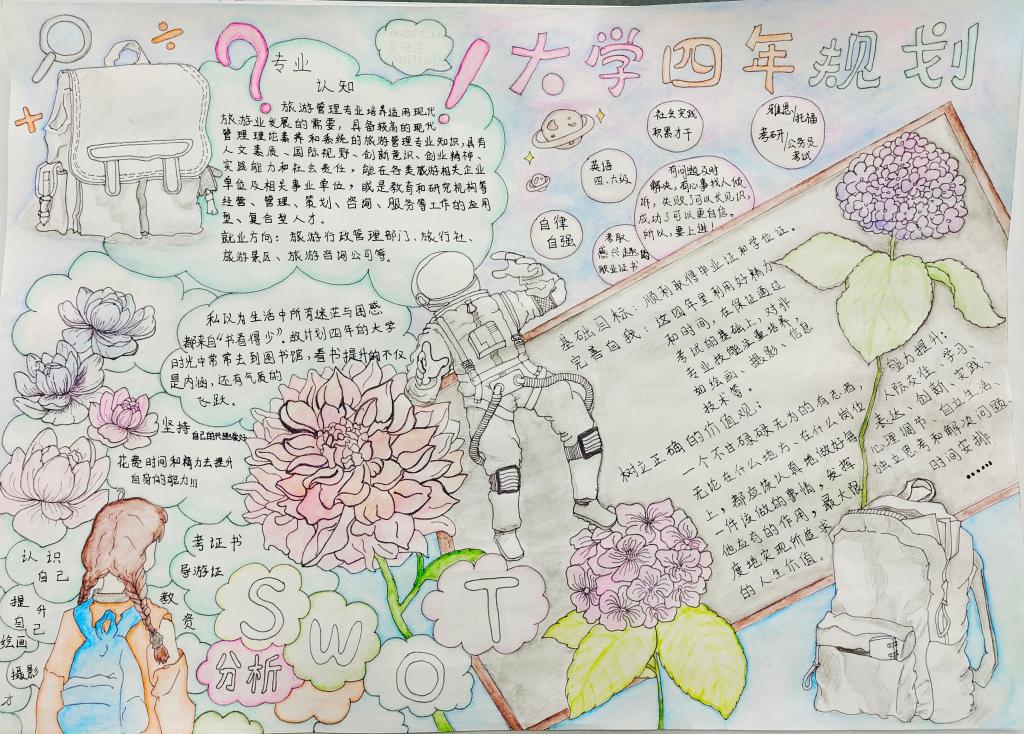 大学四年规划
专业
认知
旅游管理专业培养适用现代
旅游业发展的需要，具备较高的现代
管理理论素养和系统的旅游管理专业知识，具有
人文素质、国际视野、创新意识、创业精神、
实践能力和社会责任，能在各类旅游相关企业
单位及相关事业单位，或是教育和研究机构等
经营、管理、策划、咨询、服务等工作的应用
型、复合型人才。
就业方向：旅游行政管理部门、旅行社、
旅游景区、旅游咨询公司等。
社会实践
积累才干
雅思/托福
考研/公务员
考试
英语
四、六级
自律
自强
考取
感兴趣的
职业证书
有问题及时
解决，有心事找人倾
诉，失败了可以长见识，
成功了可以更自信。
所以，要上进！
私以为生活中所有迷茫与困惑
都来自“书看得少”，故计划四年的大学
时光中常常去到图书馆，看书提升的不仅
是内涵，还有气质的
飞跃。
坚持自己的兴趣爱好
花费时间和精力去提升
自身的能力!!!
基础目标：顺利取得毕业证和学位证。
完善自我：这四年里利用好精力
和时间，在保证通过
考试的基础上，对非
专业技能注重培养，
如绘画、摄影、信息
技术等。
树立正确的价值观：
一个不甘碌碌无为的有志者，
无论在什么地方、在什么岗位
上，都应该认真地做好每
一件该做的事情，发挥
他应有的作用，最大限
度地实现所追求
的人生价值。
能力提升：
人际交往、学习、
表达、创新、实践、
心理调节、自立生活、
独立思考和解决问题、
时间安排
......
认识
自己
提升
自己
绘画
摄影
才
考证书
导游证
教资
S
W
O
T
分析